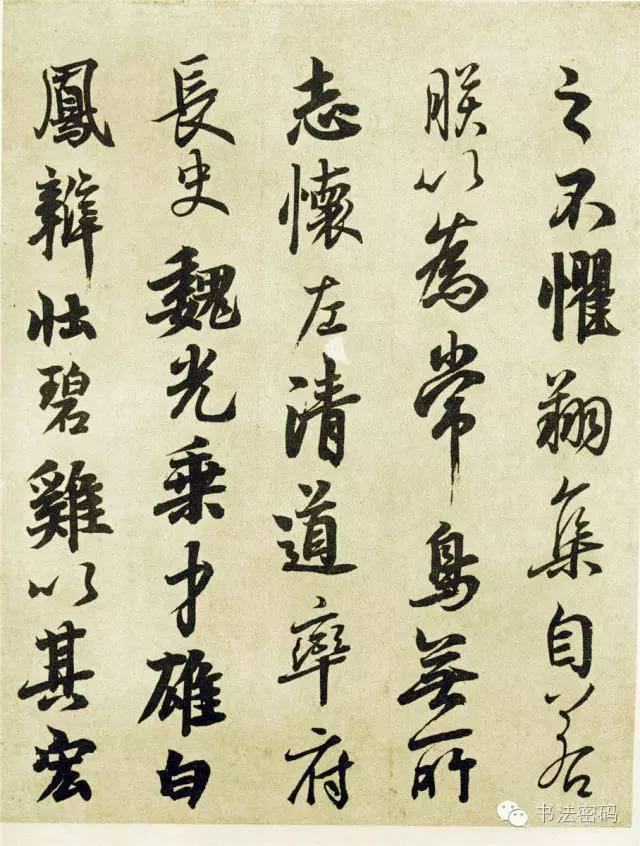 之不懼翔集自若
朕以為常鳥無所
志懷左清道率府
長史魏光乘才雄白
鳳辯壯碧雞以其宏
书法密码